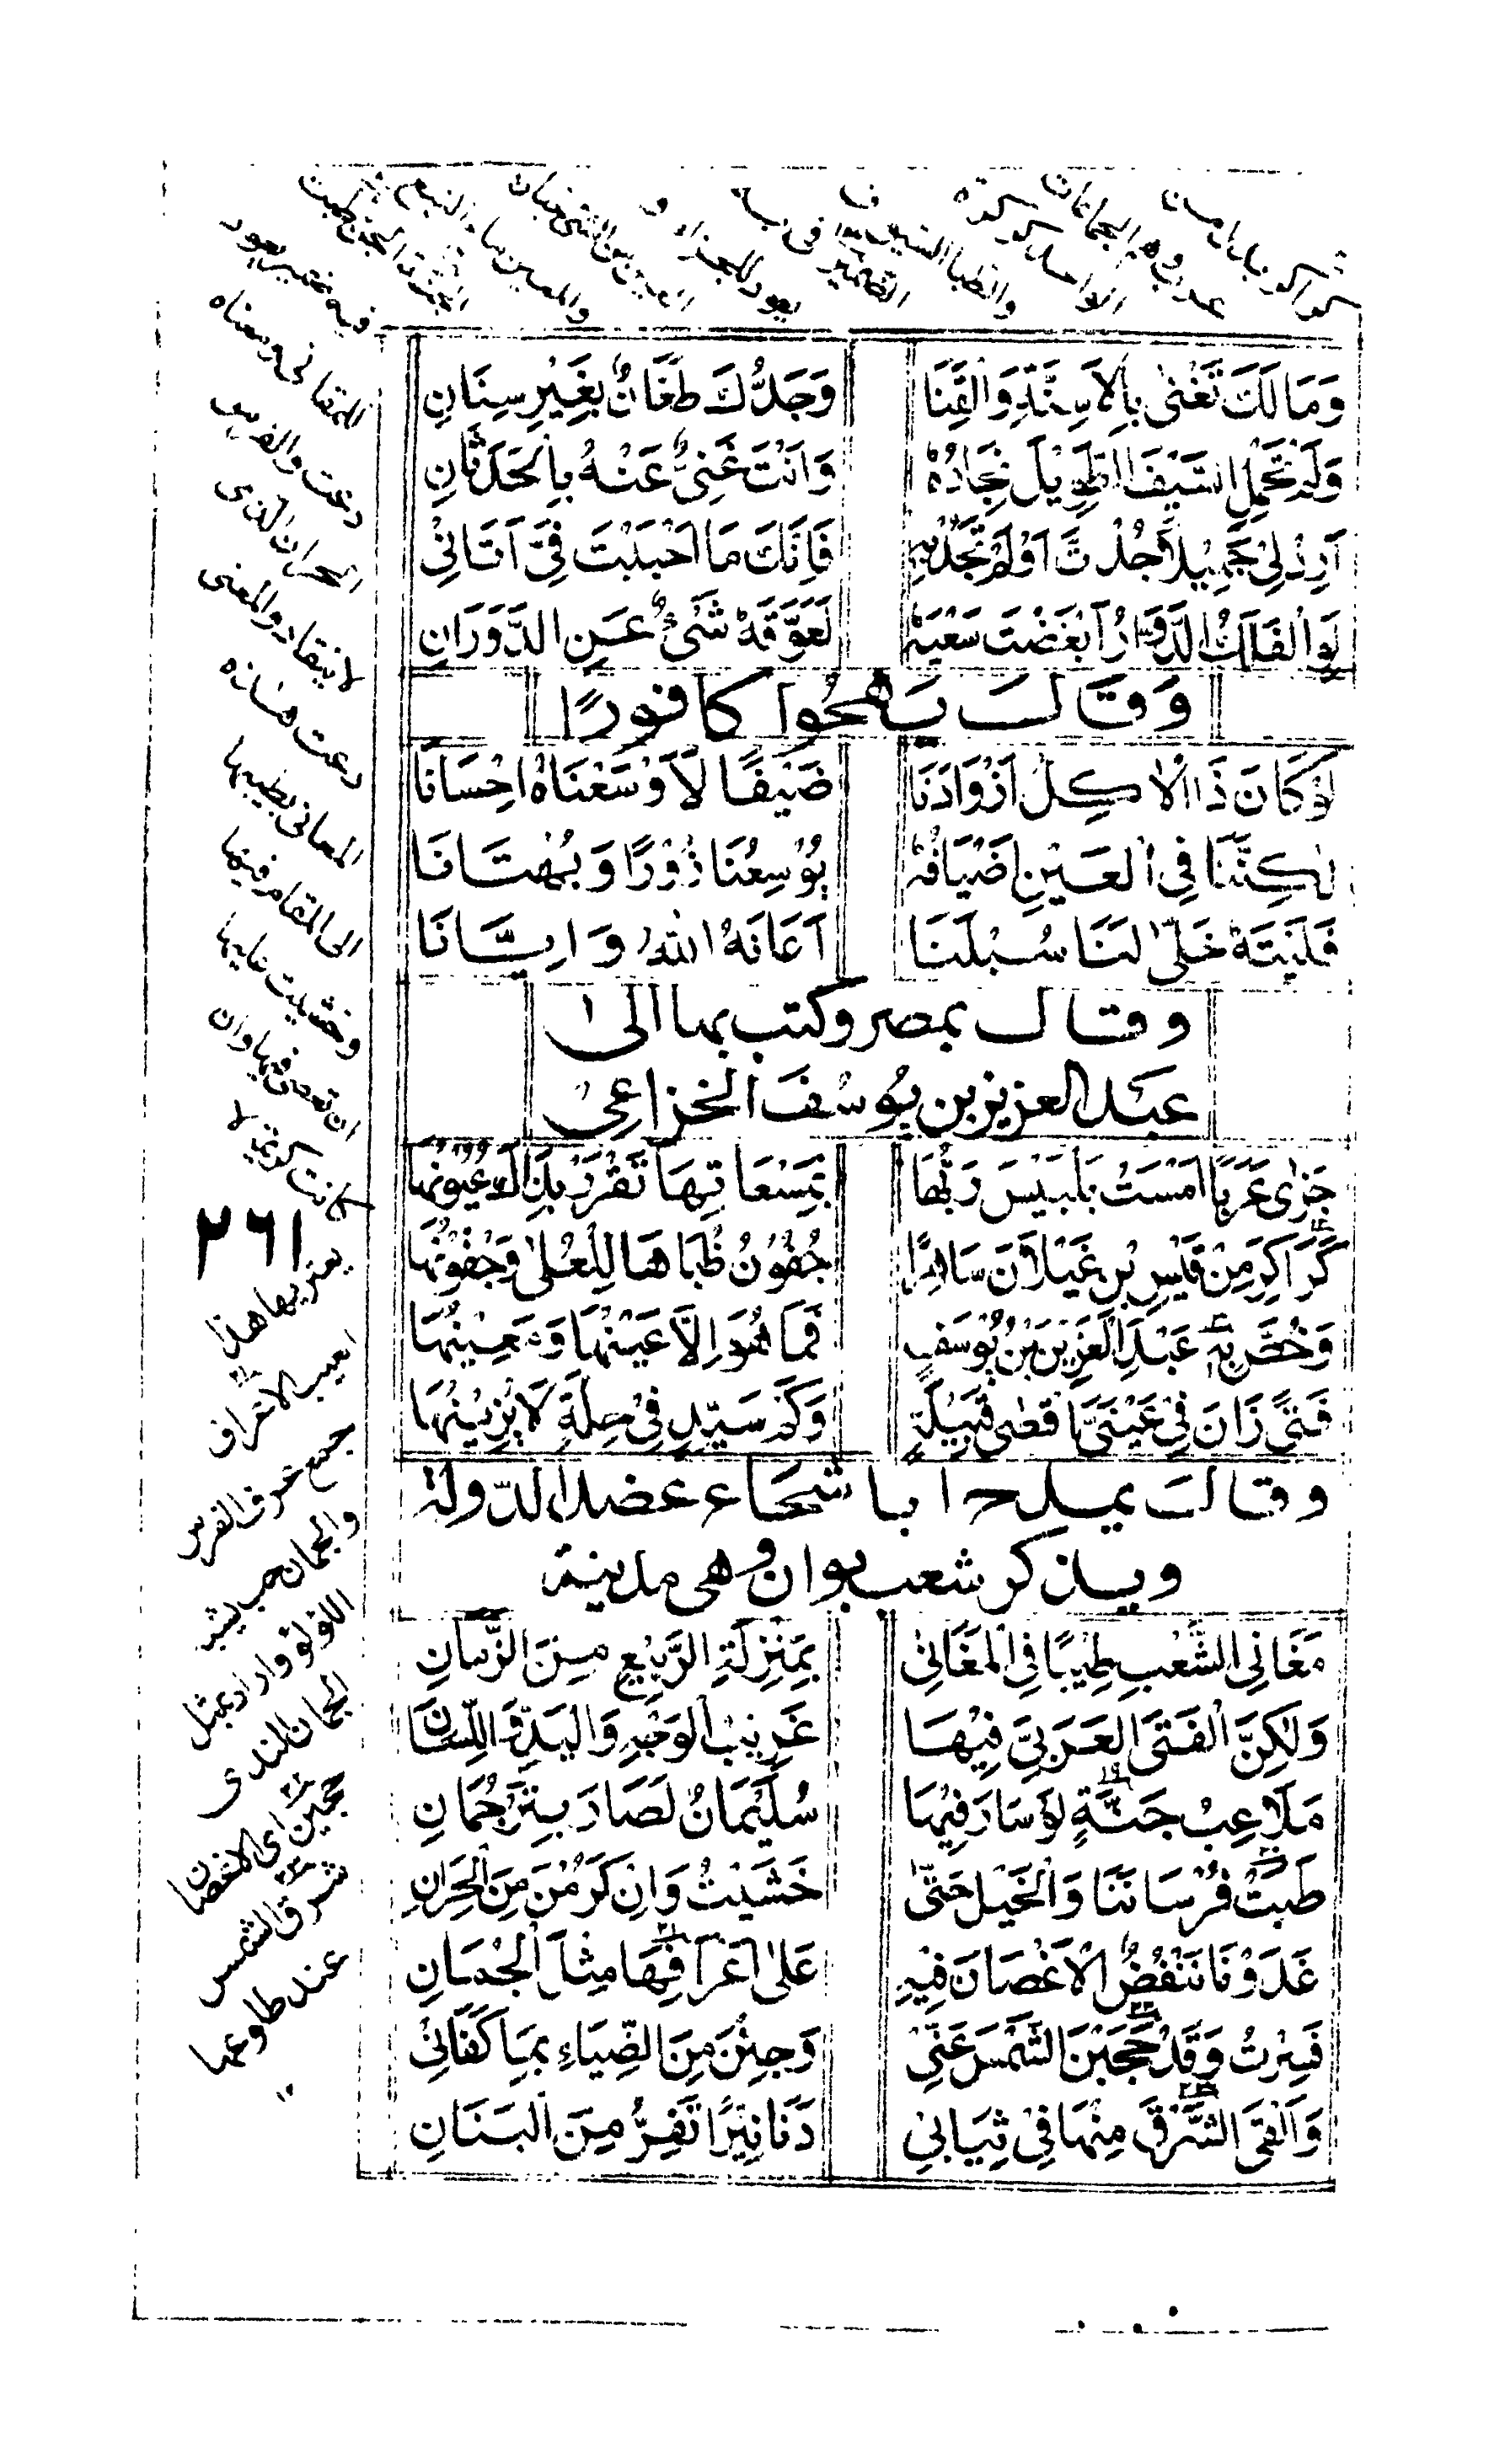 وَمَالَكَ تَغْنٰى بِالْاَسِنَّةِ وَالْقَنَا وَجَدُّكَ طَعَّانٌ بِغَيْرِ سِنَانِ
وَلِمْ تَحْمِلِ السَّيْفَ الطَّوِيْلَ نِجَادُهُ وَاَنْتَ غَنِىٌّ عَنْهُ بِالْحَدَثَانِ
اَرِدْ لِىْ جَمِيْلًا جُدْتَ اَوْ لَمْ تَجُدْ بِهِ فَاِنَّكَ مَا اَحْبَبْتَ فِىَّ اَتَانِىْ
لَوِ الْفَلَكُ الدَّوَّارُ اَبْغَضْتَ سَعْيَهُ لَعَوَّقَهُ شَىْءٌ عَنِ الدَّوَرَانِ
وَقَالَ يَهْجُوا كافورًا
لَوْ كَانَ ذَا الْاٰكِلُ اَزْوَادَنَا ضَيْفًا لَاَوْسَعْنَاهُ اِحْسَانَا
لٰكِنَّنَا فِى الْعَيْنِ اَضْيَافُهُ يُوْسِعُنَا زُوْرًا وَبُهْتَانَا
فَلَيْتَهُ خَلّٰى لَنَا سُبْلَنَا اَعَانَهُ اللهُ وَاِيَّانَا
وقال بمصر وكتب بها الى
عبد العزيز بن يوسف الخزاعى
جَزٰى عَرَبًا اَمْسَتْ بِبَلْبَيْسَ رَبُّهَا بِمَسْعَاتِهَا تَقْرَرْ بِذَاكَ عُيُوْنُهَا
كَرَاكِرَ مِنْ قَيْسِ بْنِ عَيْلَانَ سَاهِرًا جُفُوْنُ ظُبَاهَا لِلْعُلٰى وَجُفُوْنُهَا
وَخُصَّ بِهِ عَبْدَ الْعَزِيْزِ بْنُ يُوْسَفٍ فَمَا هُوَ اِلَّا عَيْنُهَا وَمَعِيْنُهَا
فَتًى زَانَ فِىْ عَيْنَىَّ اَقْصٰى قَبِيْلَةٍ وَكَمْ سَيِّدٍ فِىْ حِلَّةٍ لَا يَزِيْنُهَا
وقال يمدح ابا شجاع عضد الدولة
ويذكر شعب بوان وهى مدينة
مَغَانِى الشِّعْبِ طِيْبًا فِى الْمَغَانِىْ بِمَنْزِلَةِ الرَّبِيْعِ مِنَ الزَّمَانِ
وَلٰكِنَّ الْفَتَى الْعَرَبِىَّ فِيْهَا غَرِيْبُ الْوَجْهِ وَالْيَدِ وَاللِّسَانِ
مَلَاعِبُ جَنَّةٍ لَوْ سَارَ فِيْهَا سُلَيْمَانٌ لَصَارَ بِتَرْجُمَانِ
طَبَتْ فُرْسَانَنَا وَالْخَيْلَ حَتّٰى خَشِيْتُ وَاِنْ كَرُمْنَ مِنَ الْحِرَانِ
غَدَوْنَا نَنْفُضُ الْاَغْصَانَ فِيْهِ عَلٰى اَعْرَافِهَا مِثْلَ الْجُمَانِ
فَسِرْتُ وَقَدْ حَجَبْنَ الشَّمْسَ عَنِّىْ وَجِئْنَ مِنَ الضِّيَاءِ بِمَا كَفَانِىْ
وَاَلْقَى الشَّرْقَ مِنْهَا فِىْ ثِيَابِىْ دَنَانِيْرًا تَفِرُّ مِنَ الْبَنَانِ
فيه ضمير يعود
للمغانى ومعناه
دعت والفرس
الحران الذى
لا ينقاد والمعنى
دعت هذه
المعانى بطيبها
الى المقام فيها
وخشيت عليها
وان
كانت كريمة لا
٢٦١
يعتريها هذا
العيب الاعراف
جمع عرف الفرس
والجمان حب يشبه
اللؤلؤ واراد بمثل
الجمان الندى
حجبن اى الاغصان
شرق الشمس
عند طلوعها